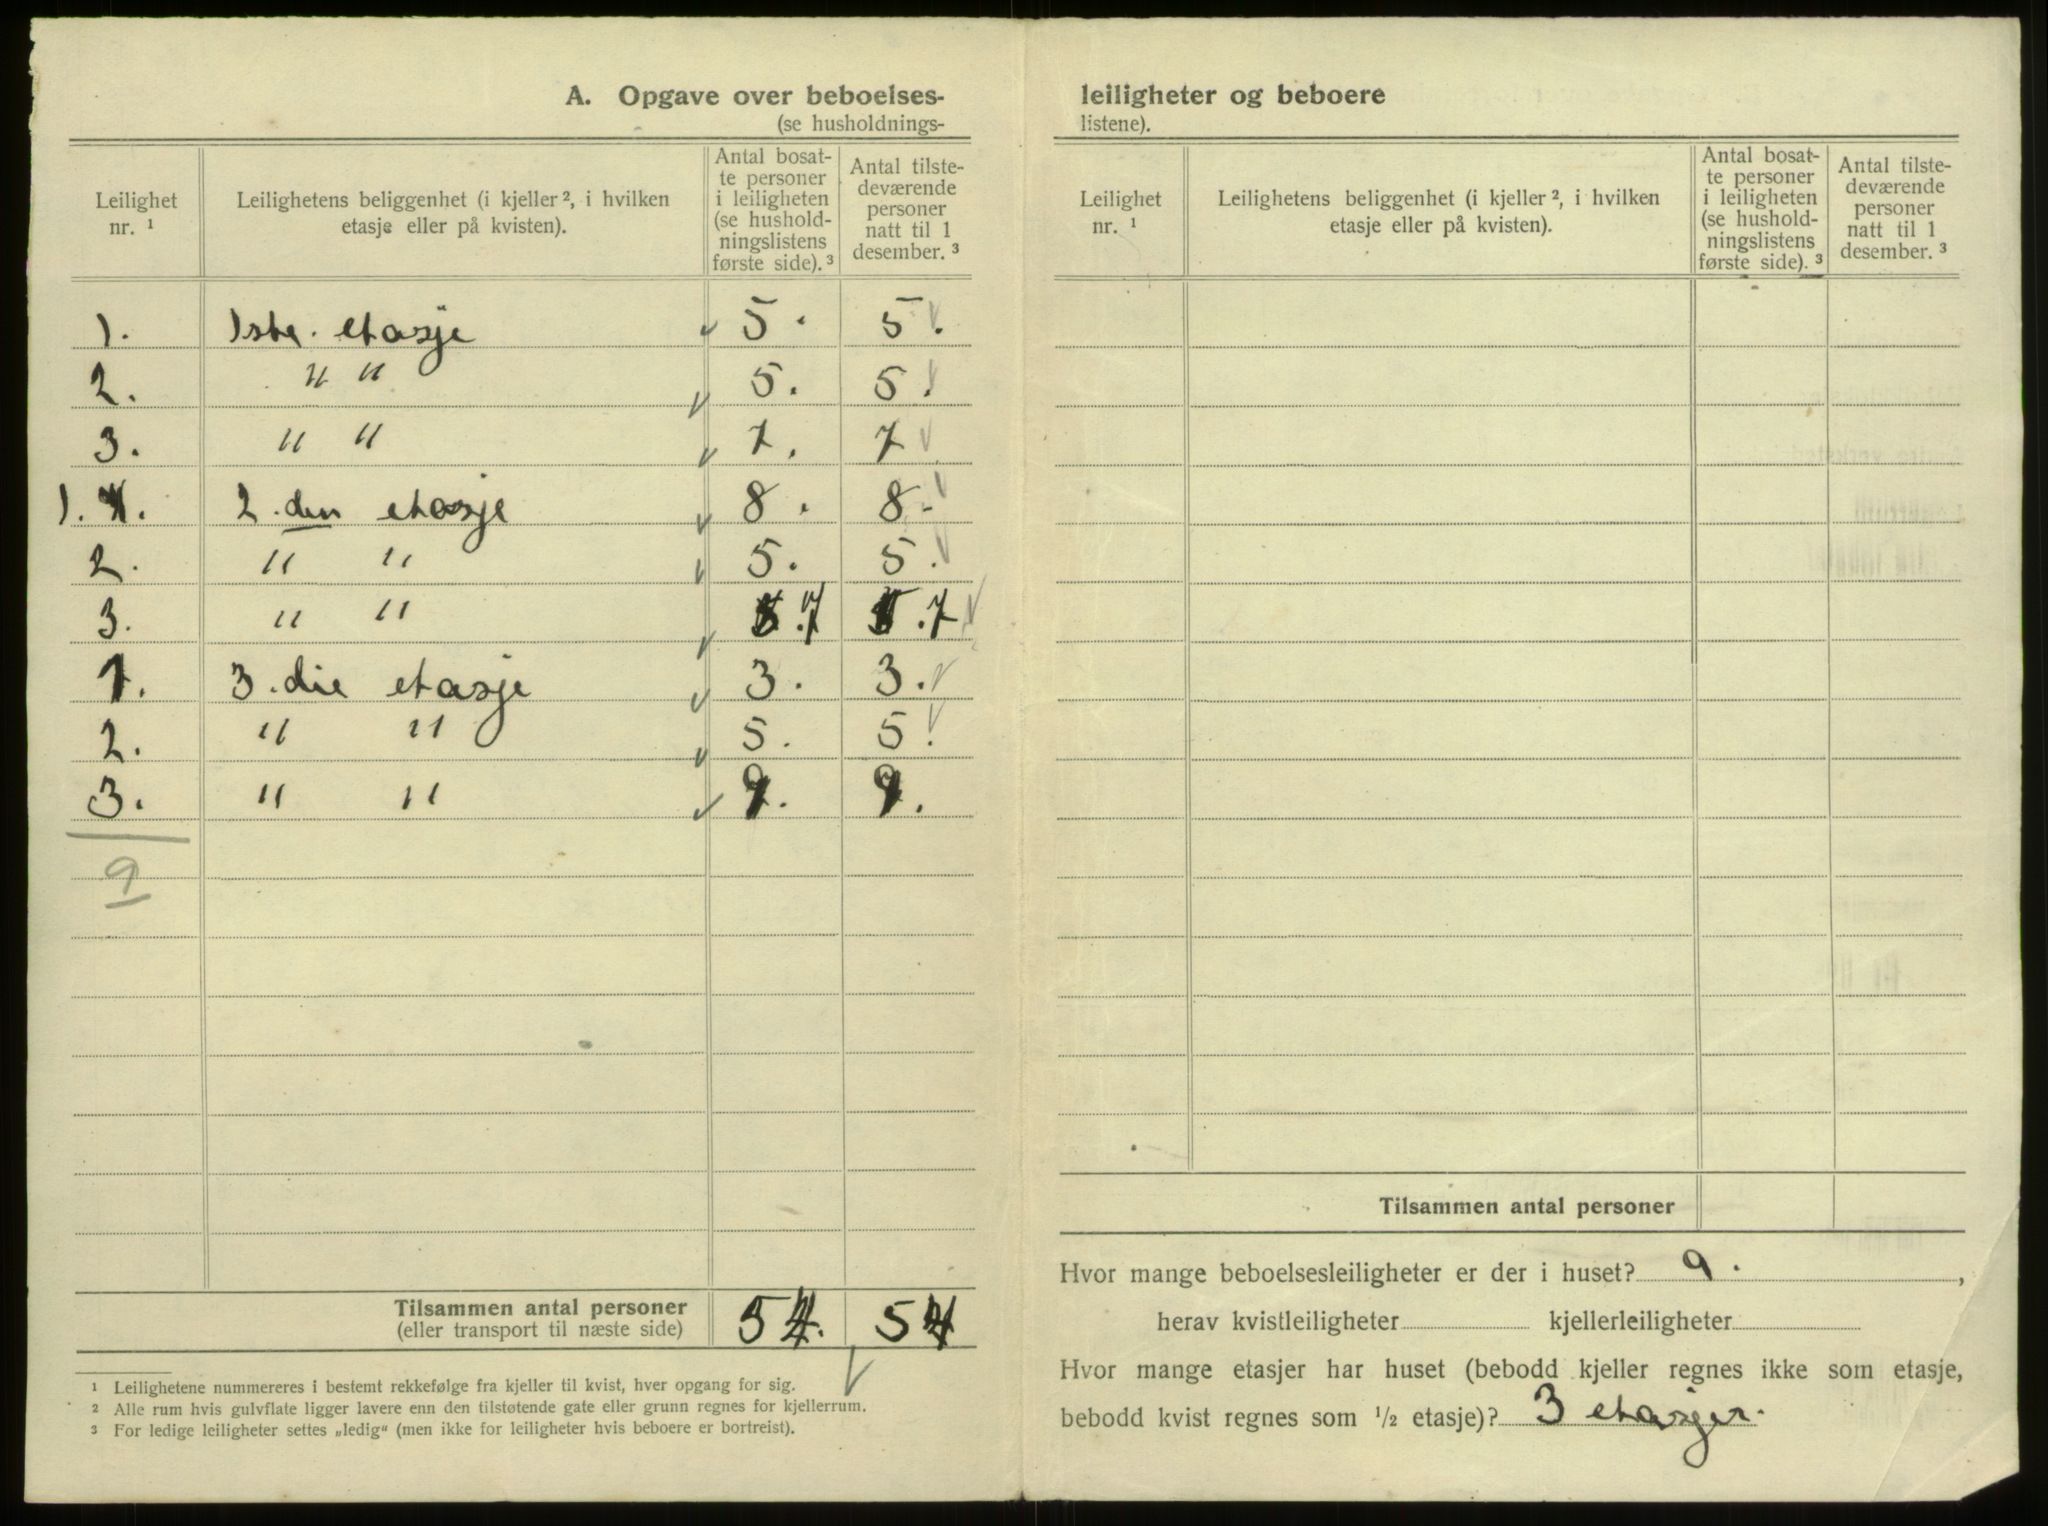 A. Opgave over beboelses-
(se husholdnings-
Leilighet nr. 1
Leilighetens beliggenhet (i kjeller 2, i hvilken etasje eller på kvisten).
Antal bosat-te personer i leiligheten (se hushold-ningslistens første side). 3
Antal tilste-deværende personer natt til 1 desember. 3
1. 1ste. etasje 5. 5.
2. " " 5. 5.
3. " " 7. 7.
1. 4. 2.den etasje 8. 8.
2. " " 5. 5.
3. " " .7 .7
1. 3.die etasje 3. 3.
2. " " 5. 5.
3. " " 9. 9.
9
Tilsammen antal personer 54. 54
(eller transport til næste side)
1 Leilighetene nummereres i bestemt rekkefølge fra kjeller til kvist, hver opgang for sig.
2 Alle rum hvis gulvflate ligger lavere enn den tilstøtende gate eller grunn regnes for kjellerrum.
3 For ledige leiligheter settes „ledig“ (men ikke for leiligheter hvis beboere er bortreist).
leiligheter og beboere
listene).
Leilighet nr. 1
Leilighetens beliggenhet (i kjeller 2, i hvilken etasje eller på kvisten).
Antal bosat-te personer i leiligheten (se hushold-ningslistens første side). 3
Antal tilste-deværende personer natt til 1 desember. 3
Tilsammen antal personer
Hvor mange beboelsesleiligheter er der i huset? 9. ,
herav kvistleiligheter kjellerleiligheter
Hvor mange etasjer har huset (bebodd kjeller regnes ikke som etasje,
bebodd kvist regnes som 1/2 etasje)? 3 etasjer.